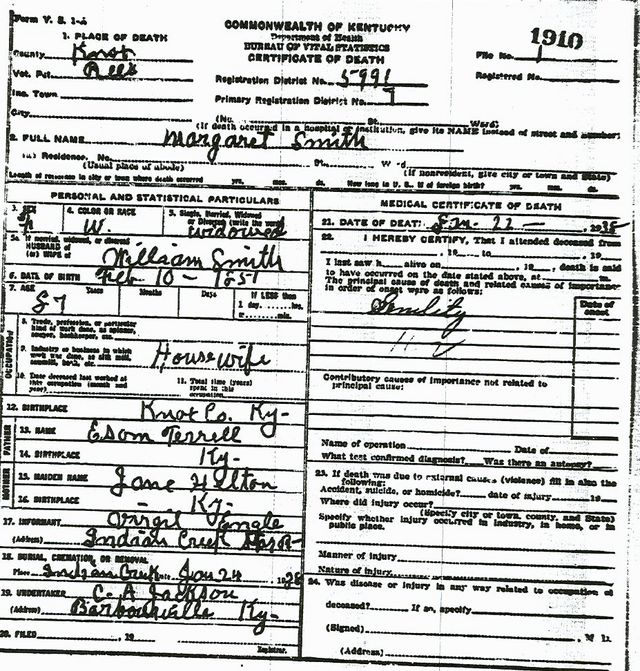 Form V. S. 1-A
COMMONWEALTH OF KENTUCKY
Department of Health
BUREAU OF VITAL STATISTICS
CERTIFICATE OF DEATH
1910
File No. 1
Registered No.
1. PLACE OF DEATH
County Knox
Vot. Pct.
Inc. Town
City
Registration District No. 5991
Primary Registration District No. 7
(No. St. Ward)
(If death occurred in a hospital or institution, give its NAME instead of street and number)
2. FULL NAME Margaret Smith
(a) Residence. No. St.
(Usual place of abode)
(If nonresident, give city or town and State)
Length of residence in city or town where death occurred yrs. mos. ds. How long in U. S., if of foreign birth? yrs. mos. ds.
PERSONAL AND STATISTICAL PARTICULARS
3. SEX
F
4. COLOR OR RACE
W.
5. Single, Married, Widowed
or Divorced (write the word)
widowed
5a. If married, widowed, or divorced
HUSBAND of
(or) WIFE of William Smith
6. DATE OF BIRTH Feb 10 - 1851
7. AGE Years Months Days If LESS than
87
1 day, hrs.
or min.
OCCUPATION
8. Trade, profession, or particular
kind of work done, as spinner,
sawyer, bookkeeper, etc.
9. Industry or business in which
work was done, as silk mill,
sawmill, bank, etc.
Housewife
10. Date deceased last worked at
this occupation (month and
year)
11. Total time (years)
spent in this
occupation
12. BIRTHPLACE Knox Co. Ky-
FATHER
13. NAME Esom Terrell
14. BIRTHPLACE Ky-
MOTHER
15. MAIDEN NAME Jane Helton
16. BIRTHPLACE - Ky-
17. INFORMANT Virgil Engle
(Address) Indian Creek
18. BURIAL, CREMATION, OR REMOVAL
Place Indian Creek Date Jan 24 1938
19. UNDERTAKER C. A Jackson
(Address) Barbourville Ky-
20. FILED , 19
Registrar.
MEDICAL CERTIFICATE OF DEATH
21. DATE OF DEATH Jan. 22 - , 1938
22. I HEREBY CERTIFY, That I attended deceased from
, 19 to , 19
I last saw h alive on , 19 , death is said
to have occurred on the date stated above, at
The principal cause of death and related causes of importance
in order of onset were as follows:
Date of
onset
Senility
Contributory causes of importance not related to
principal cause:
Name of operation Date of
What test confirmed diagnosis? Was there an autopsy?
23. If death was due to external causes (violence) fill in also the
following:
Accident, suicide, or homicide? date of injury 19
Where did injury occur?
(Specify city or town, county, and State)
Specify whether injury occurred in industry, in home, or in
public place.
Manner of injury
Nature of injury
24. Was disease or injury in any way related to occupation of
deceased? If so, specify
(Signed) , M D.
(Address)